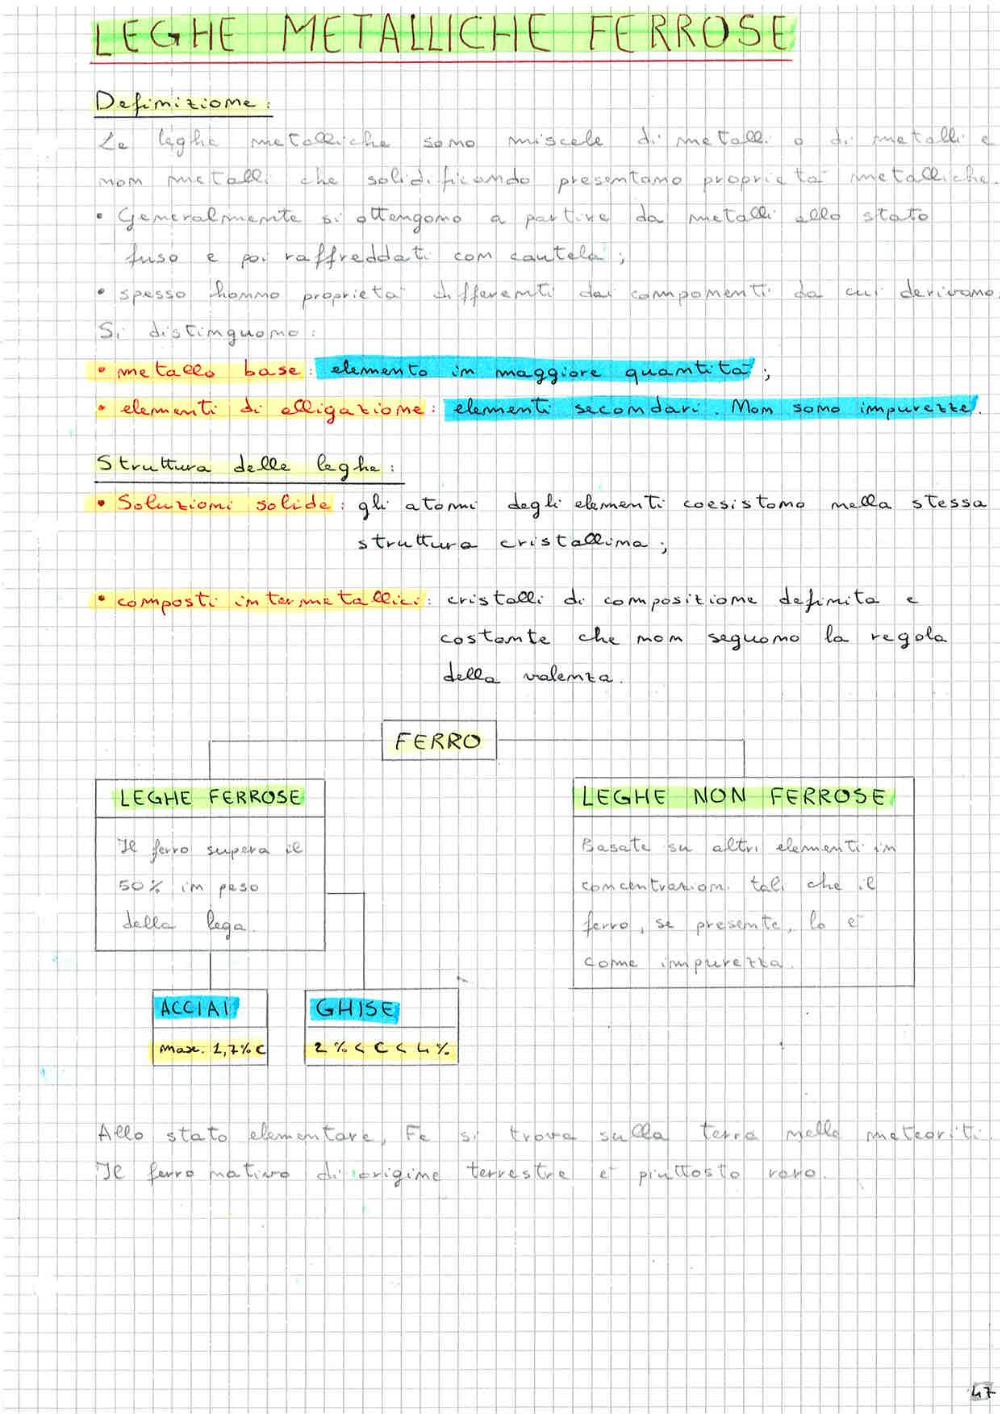 LEGHE METALLICHE FERROSE
Definizione:
Le leghe metalliche sono miscele di metalli o di metalli e
non metalli che solidificando presentano proprietà metalliche.
• Generalmente si ottengono a partire da metalli allo stato
fuso e poi raffreddati con cautela;
• spesso hanno proprietà differenti dai componenti da cui derivano.
Si distinguono:
• metallo base: elemento in maggiore quantità;
• elementi di alligazione: elementi secondari. Non sono impurezze.
Struttura delle leghe:
• Soluzioni solide: gli atomi degli elementi coesistono nella stessa
struttura cristallina;
• composti intermetallici: cristalli di composizione definita e
costante che non seguono la regola
della valenza.
FERRO
LEGHE FERROSE
Il ferro supera il
50% in peso
della lega.
LEGHE NON FERROSE
Basate su altri elementi in
concentrazioni tali che il
ferro, se presente, lo è
come impurezza.
ACCIAI
max. 1,7% C
GHISE
2% < C < 4%
Allo stato elementare, Fe si trova sulla terra nelle meteoriti.
Il ferro nativo di origine terrestre è piuttosto raro.
47